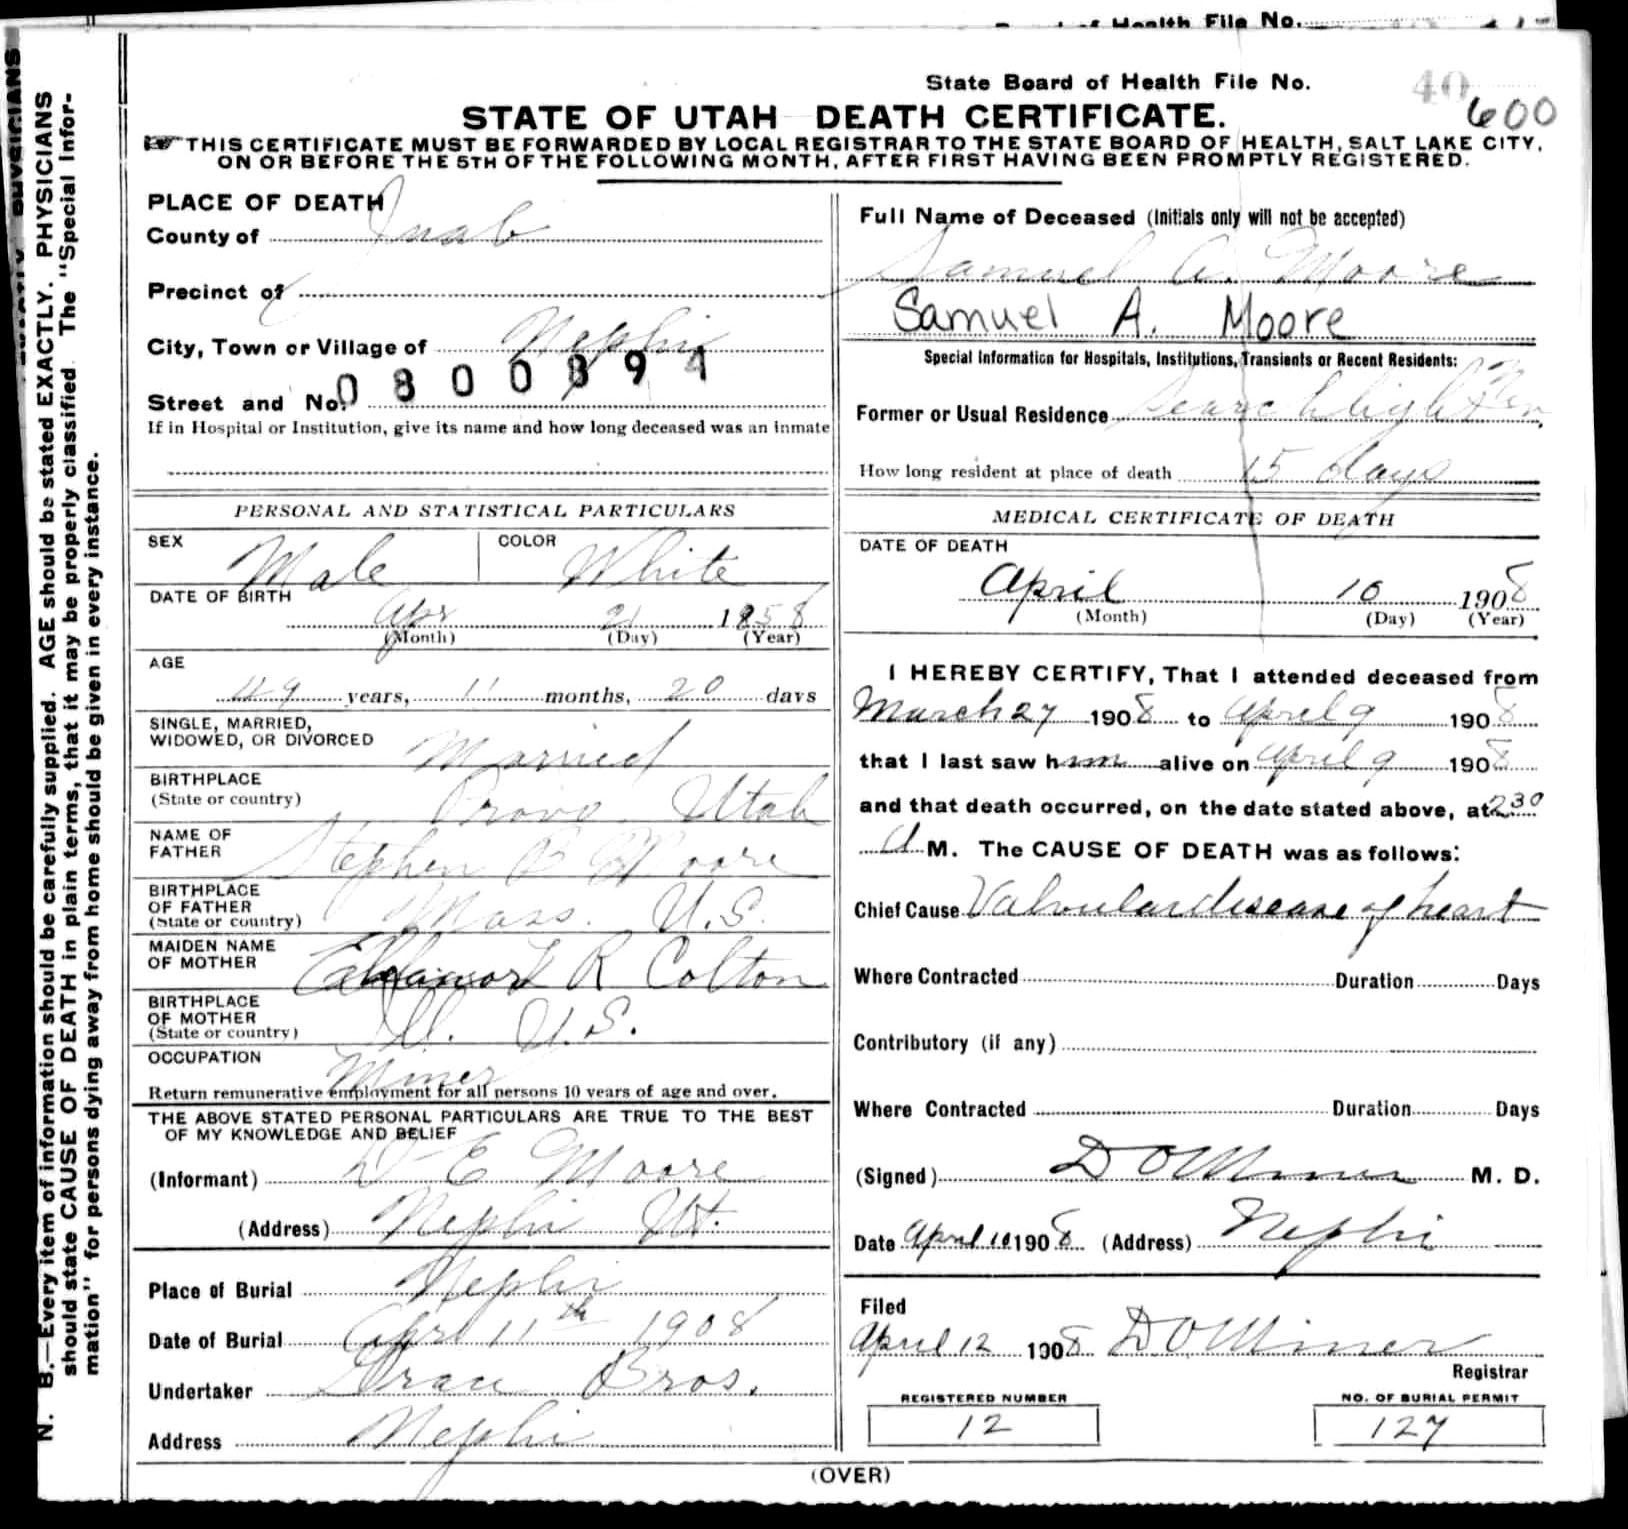 Board of Health File No.
State Board of Health File No.
40
600
STATE OF UTAH DEATH CERTIFICATE.
THIS CERTIFICATE MUST BE FORWARDED BY LOCAL REGISTRAR TO THE STATE BOARD OF HEALTH, SALT LAKE CITY,
ON OR BEFORE THE 5TH OF THE FOLLOWING MONTH, AFTER FIRST HAVING BEEN PROMPTLY REGISTERED.
N. B.—Every item of information should be carefully supplied. AGE should be stated EXACTLY. PHYSICIANS
should state CAUSE OF DEATH in plain terms, that it may be properly classified. The "Special Infor-
mation" for persons dying away from home should be given in every instance.
PLACE OF DEATH
County of Juab
Precinct of
City, Town or Village of Nephi
0800894
Street and No.
If in Hospital or Institution, give its name and how long deceased was an inmate
PERSONAL AND STATISTICAL PARTICULARS
SEX Male COLOR White
DATE OF BIRTH
Apr 21 1858
(Month) (Day) (Year)
AGE
49 years, 11 months, 20 days
SINGLE, MARRIED,
WIDOWED, OR DIVORCED Married
BIRTHPLACE
(State or country) Provo Utah
NAME OF
FATHER Stephen B Moore
BIRTHPLACE
OF FATHER
(State or country) Mass. U.S.
MAIDEN NAME
OF MOTHER R Colton
BIRTHPLACE
OF MOTHER
(State or country) Ill. U.S.
OCCUPATION
Miner
Return remunerative employment for all persons 10 years of age and over.
THE ABOVE STATED PERSONAL PARTICULARS ARE TRUE TO THE BEST
OF MY KNOWLEDGE AND BELIEF
(Informant) E Moore
(Address) Nephi Ut.
Place of Burial Nephi
Date of Burial Apr 11th 1908
Undertaker Bros.
Address Nephi
Full Name of Deceased (Initials only will not be accepted)
Samuel A. Moore
Samuel A. Moore
Special Information for Hospitals, Institutions, Transients or Recent Residents:
Former or Usual Residence Searchlight Nev
How long resident at place of death 15 days
MEDICAL CERTIFICATE OF DEATH
DATE OF DEATH
April 10 1908
(Month) (Day) (Year)
I HEREBY CERTIFY, That I attended deceased from
March 27 1908 to April 9 1908
that I last saw him alive on April 9 1908
and that death occurred, on the date stated above, at 2 30
A M. The CAUSE OF DEATH was as follows:
Chief Cause Valvular disease of heart
Where Contracted Duration Days
Contributory (if any)
Where Contracted Duration Days
(Signed) D O Miner M. D.
Date April 10 1908 (Address) Nephi
Filed
April 12 1908 D O Miner
Registrar
REGISTERED NUMBER
12
NO. OF BURIAL PERMIT
127
(OVER)